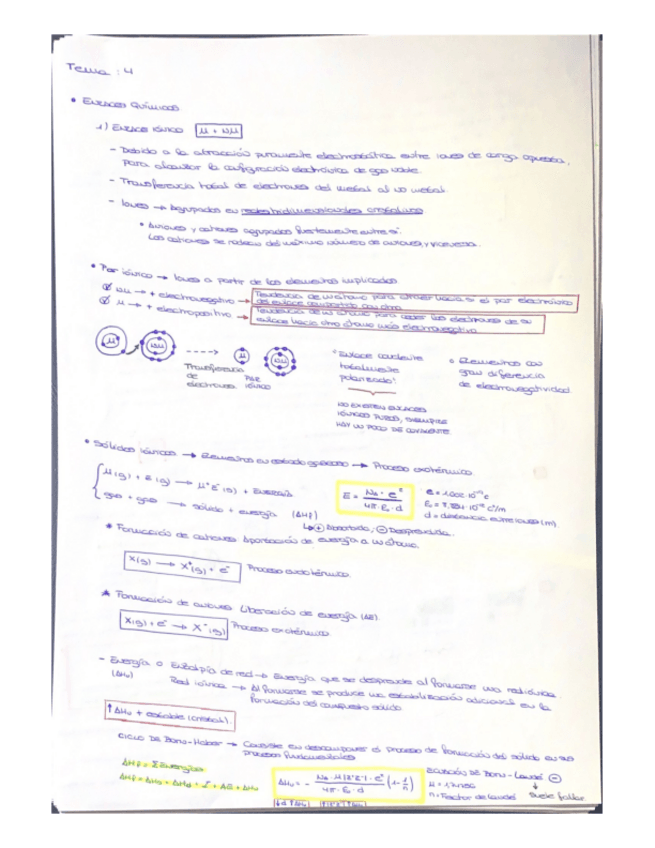 Tema : 4
• ENLACES QUÍMICOS
1) ENLACE IÓNICO M + NM
- Debido a la atracción puramente electrostática entre iones de carga opuesta,
para alcanzar la configuración electrónica de gas noble.
- Transferencia total de electrones del metal al no metal.
- Iones → Agrupados en redes tridimensionales cristalinas
• Aniones y cationes agrupados fuertemente entre sí.
Los cationes se rodean del máximo número de aniones, y viceversa.
• Par iónico → Iones a partir de los elementos implicados
NM → + electronegativo → Tendencia de un átomo para atraer hacia sí el par electrónico
de enlace compartido con otro.
M → + electropositivo → Tendencia de un átomo para ceder los electrones de su
enlace hacia otro átomo más electronegativo
M NM
Transferencia
de
electrones
M NM
PAR
IÓNICO
"Enlace covalente
totalmente
polarizado"
NO EXISTEN ENLACES
IÓNICOS PUROS, SIEMPRE
HAY UN POCO DE COVALENTE.
Elementos con
gran diferencia
de electronegatividad.
• Sólidos iónicos → Elementos en estado gaseoso → Proceso exotérmico.
gas + gas → sólido + energía (ΔHf)
↳ ⊕ Absorbida, ⊖ Desprendida.
E = Na · e² / 4π · E₀ · d
d = distancia entre iones (m)
* Formación de cationes Aportación de energía a un átomo.
X(g) → X⁺(g) + e⁻ Proceso endotérmico.
* Formación de aniones Liberación de energía (AE)
X(g) + e⁻ → X⁻(g) Proceso exotérmico.
- Energía o Entalpía de red → Energía que se desprende al formarse una red iónica.
(ΔHu)
Red iónica → Al formarse se produce una estabilización adicional en la
formación del compuesto sólido
↑ ΔHu + estable (cristal).
CICLO DE Born-Haber → Consiste en descomponer el proceso de formación del sólido en sus
procesos fundamentales
ΔHf = Σ Energías
ΔHf = ΔHs + ΔHd + I + AE + ΔHu
ΔHu = - Na · M |Z⁺Z⁻| · e² / 4π · E₀ · d (1 - 1/n)
ECUACIÓN DE Born-Landé ⊖
n = Factor de Landé
Suele fallar